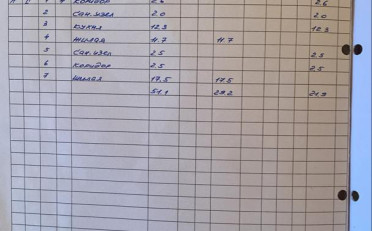 1 Коридор 2.6 2.6
2 Сан.узел 2.0 2.0
3 Кухня 12.3 12.3
4 Жилая 11.7 11.7
5 Сан.узел 2.5 2.5
6 Коридор 2.5 2.5
7 Жилая 17.5 17.5
51.1 29.2 21.9